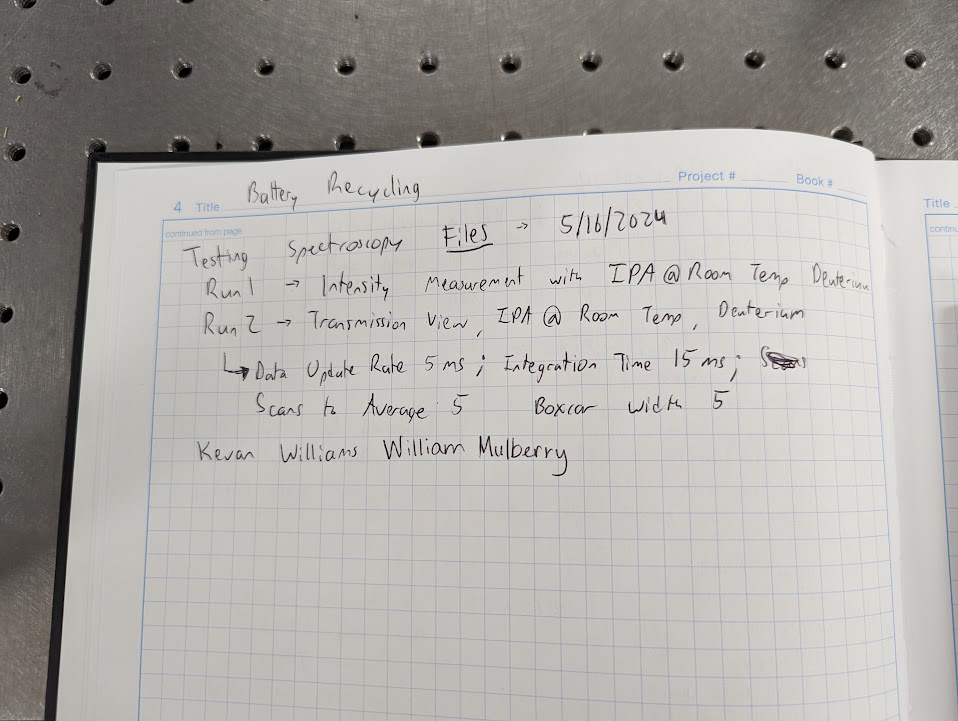 Battery Recycling
Project # Book #
4 Title
continued from page
Testing Spectroscopy Files → 5/16/2024
Run 1 → Intensity Measurement with IPA @ Room Temp Deuterium
Run 2 → Transmission View, IPA @ Room Temp, Deuterium
↳ Data Update Rate 5 ms; Integration Time 15 ms;
Scans to Average 5 Boxcar width 5
Kevan Williams William Mulberry
Title